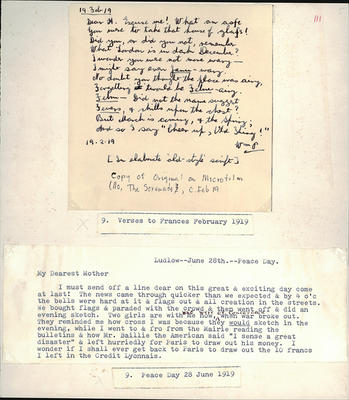 19. Feb. 19
111
Dear H. Excuse me! What an
You were to take that house of glass!
Did you, or did you not, remember
What London is in dark December?
I wonder you were not more wary—
I might say even
No doubt you thought the place was airy,
would be
Did not the name suggest
& chills upon the chest?
But March is coming, & the Spring,
And so I say "Cheer up, Old Thing!"
19.2.19
[In elaborate 'old-style' script]
Copy of Original on Microfilm
C. Feb 19
9. Verses to Frances February 1919
Ludlow--June 28th.--Peace Day.
My Dearest Mother
I must send off a line dear on this great & exciting day come
at last! The news came through quicker than we expected & by 4 o'c
the bells were hard at it & flags out & all creation in the streets.
We bought flags & paraded with the crowd & then went off & did an
evening sketch. Two girls are with me now, when war broke out.
They reminded me how cross I was because they would sketch in the
evening, while I went to & fro from the Mairie reading the
bulletins & how Mr. Baillie the American said "I sense a great
disaster" & left hurriedly for Paris to draw out his money. I
wonder if I shall ever get back to Paris to draw out the 10 francs
I left in the Credit Lyonnais.
9. Peace Day 28 June 1919